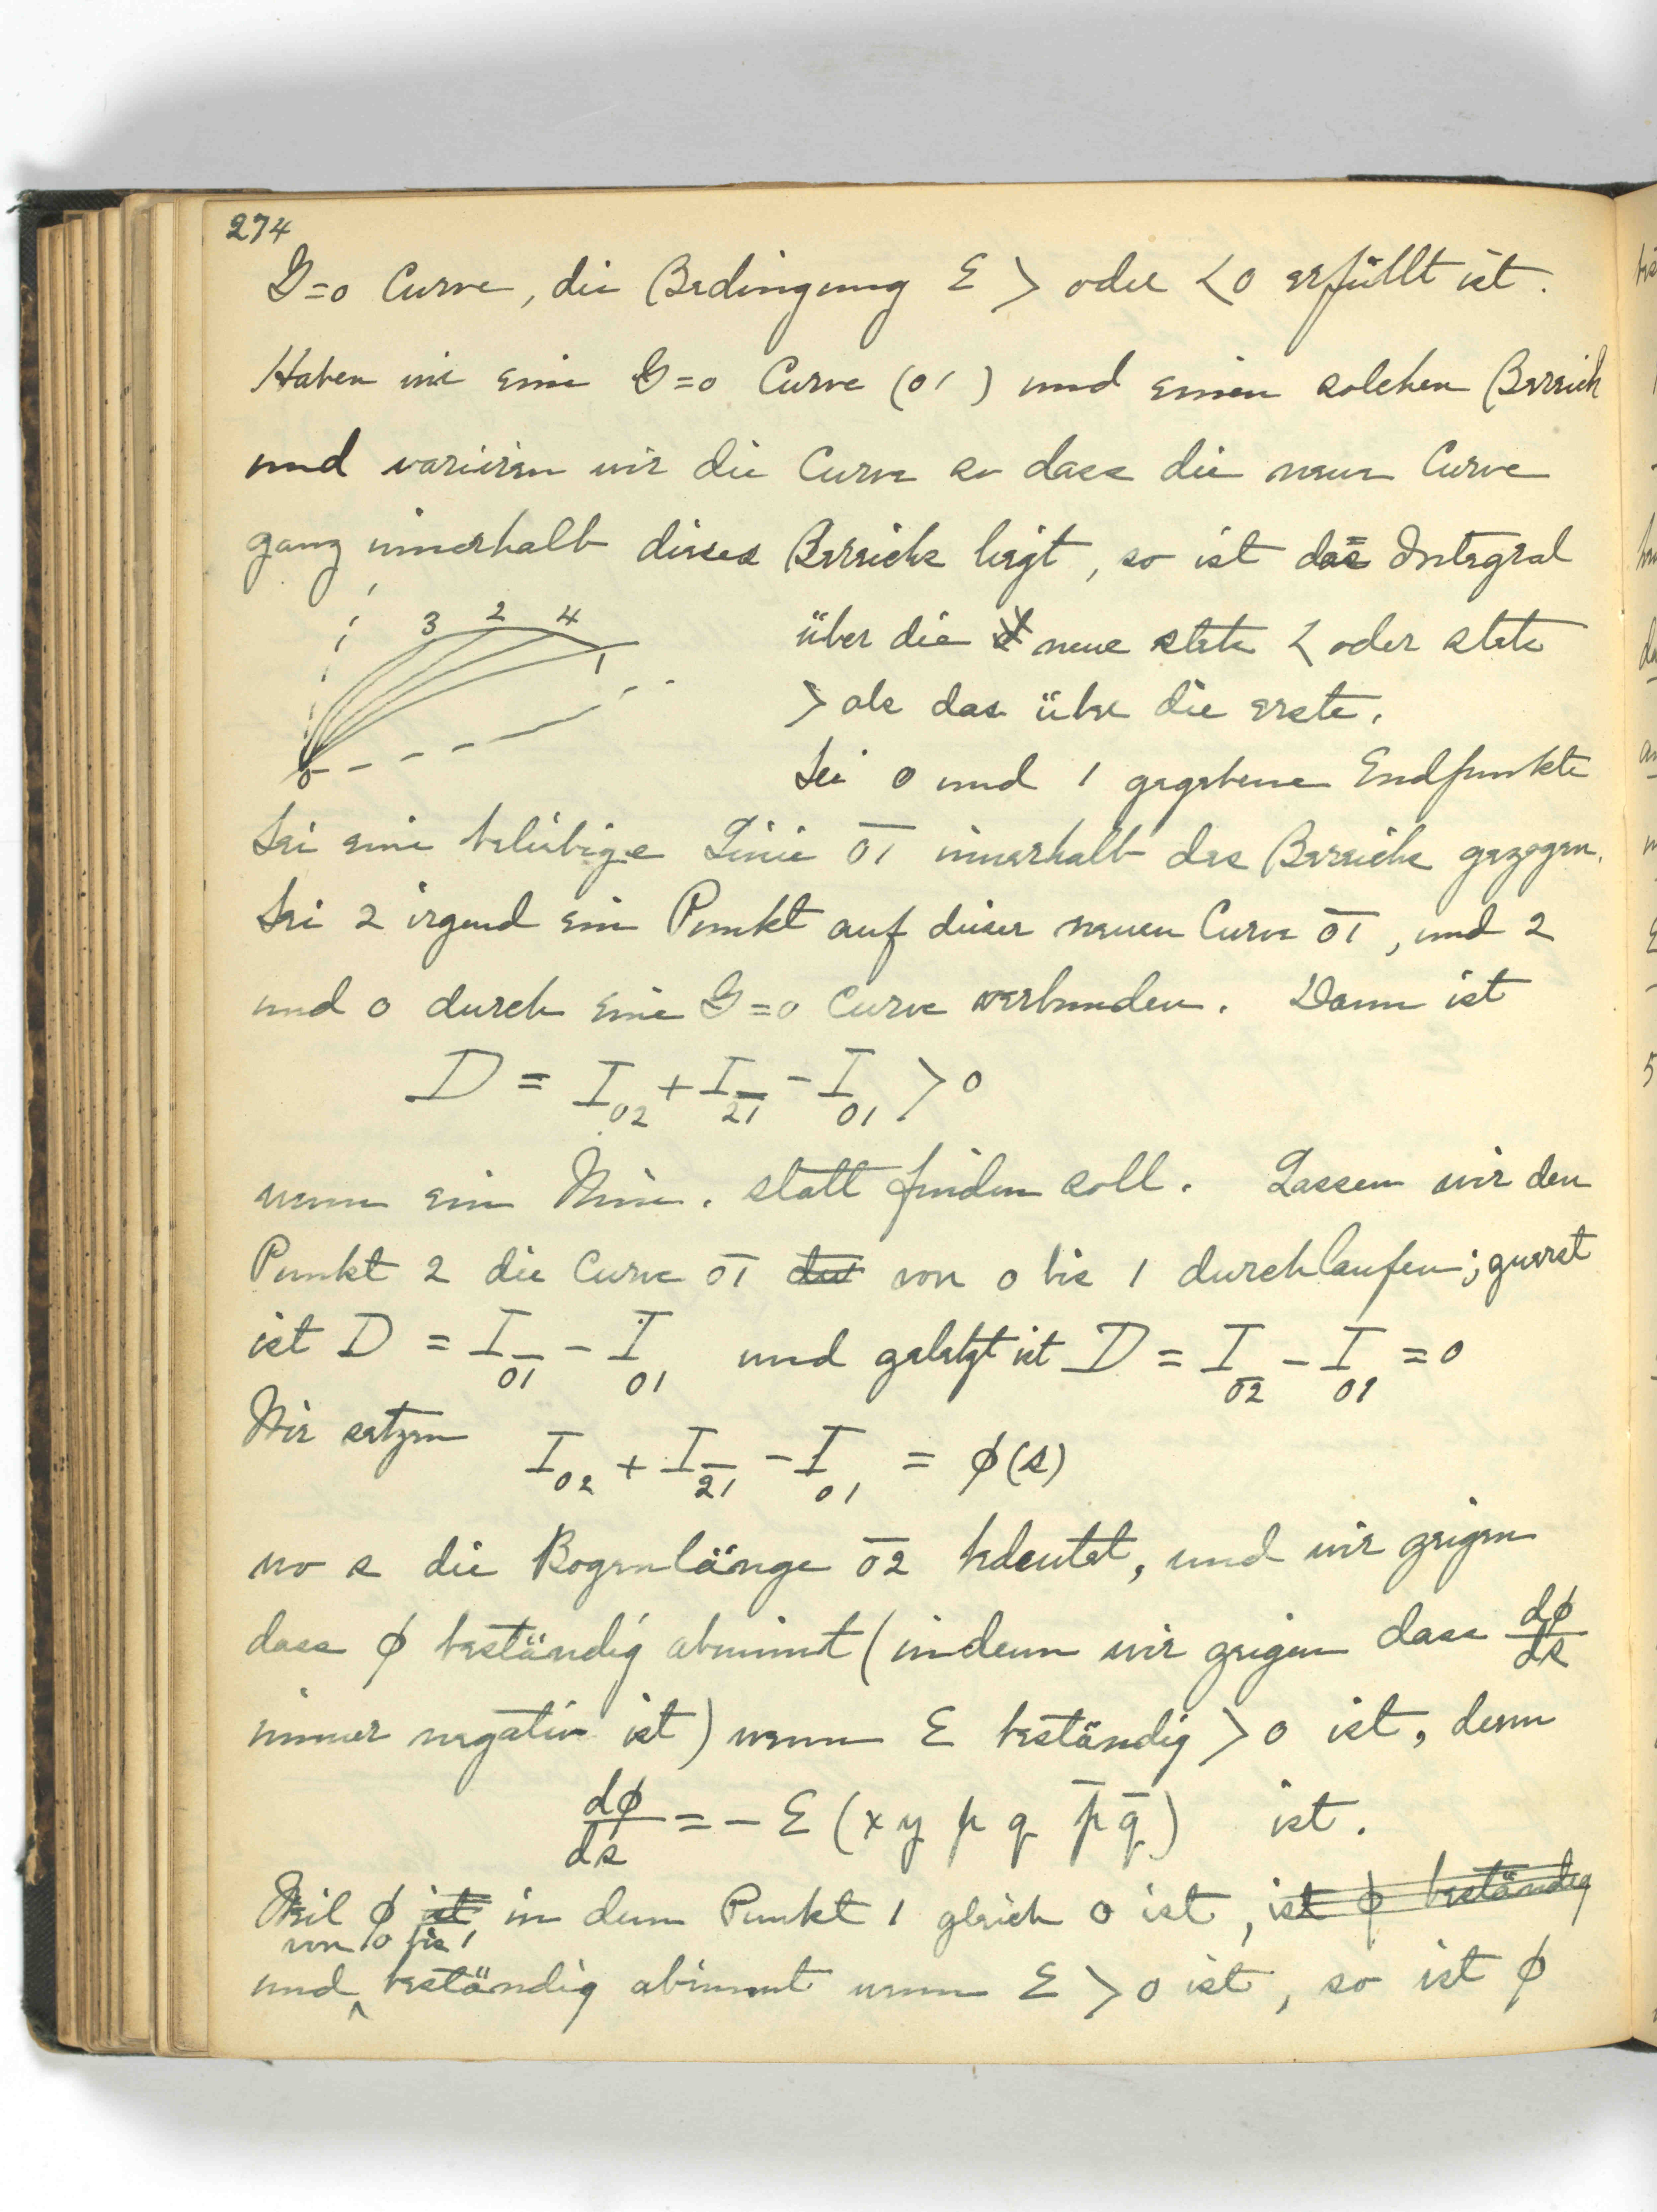 274
G=0 Curve, die Bedingung Ɛ > oder <0 erfüllt ist.
Haben wir eine G=0 Curve (01) und einen solchen Bereich
und variiren wir die Curve so dass die neue Curve
ganz innerhalb dieses Bereichs liegt, so ist das Integral
3 2 4
1
0
über die neue stets < oder stets
> als das über die erste.
Sei 0 und 1 gegebene Endpunkte
Sei eine beliebige Linie 0̅1̅ innerhalb des Bereichs gezogen.
Sei 2 irgend ein Punkt auf dieser neuen Curve 0̅1̅, und 2
und 0 durch eine G=0 Curve verbunden. Dann ist
D = I₀₂ + I_{\overline{21}} - I₀₁ > 0
wenn ein Min. statt finden soll. Lassen wir den
Punkt 2 die Curve 0̅1̅ von 0 bis 1 durchlaufen; zuerst
ist D = I_{\overline{01}} - I₀₁ und zuletzt ist D = I_{02} - I_{01} = 0
Wir setzen I₀₂ + I_{\overline{21}} - I₀₁ = ϕ(s)
wo s die Bogenlänge 0̅2̅ bedeutet, und wir zeigen
dass ϕ beständig abnimt (indem wir zeigen dass dϕ/ds
immer negativ ist) wenn Ɛ beständig > 0 ist, denn
dϕ/ds = - Ɛ (x y p q p̅ q̅) ist.
Weil ϕ ist in dem Punkt 1 gleich 0 ist, ist ϕ beständig
von 0 bis 1
und beständig abnimmt wenn Ɛ > 0 ist, so ist ϕ